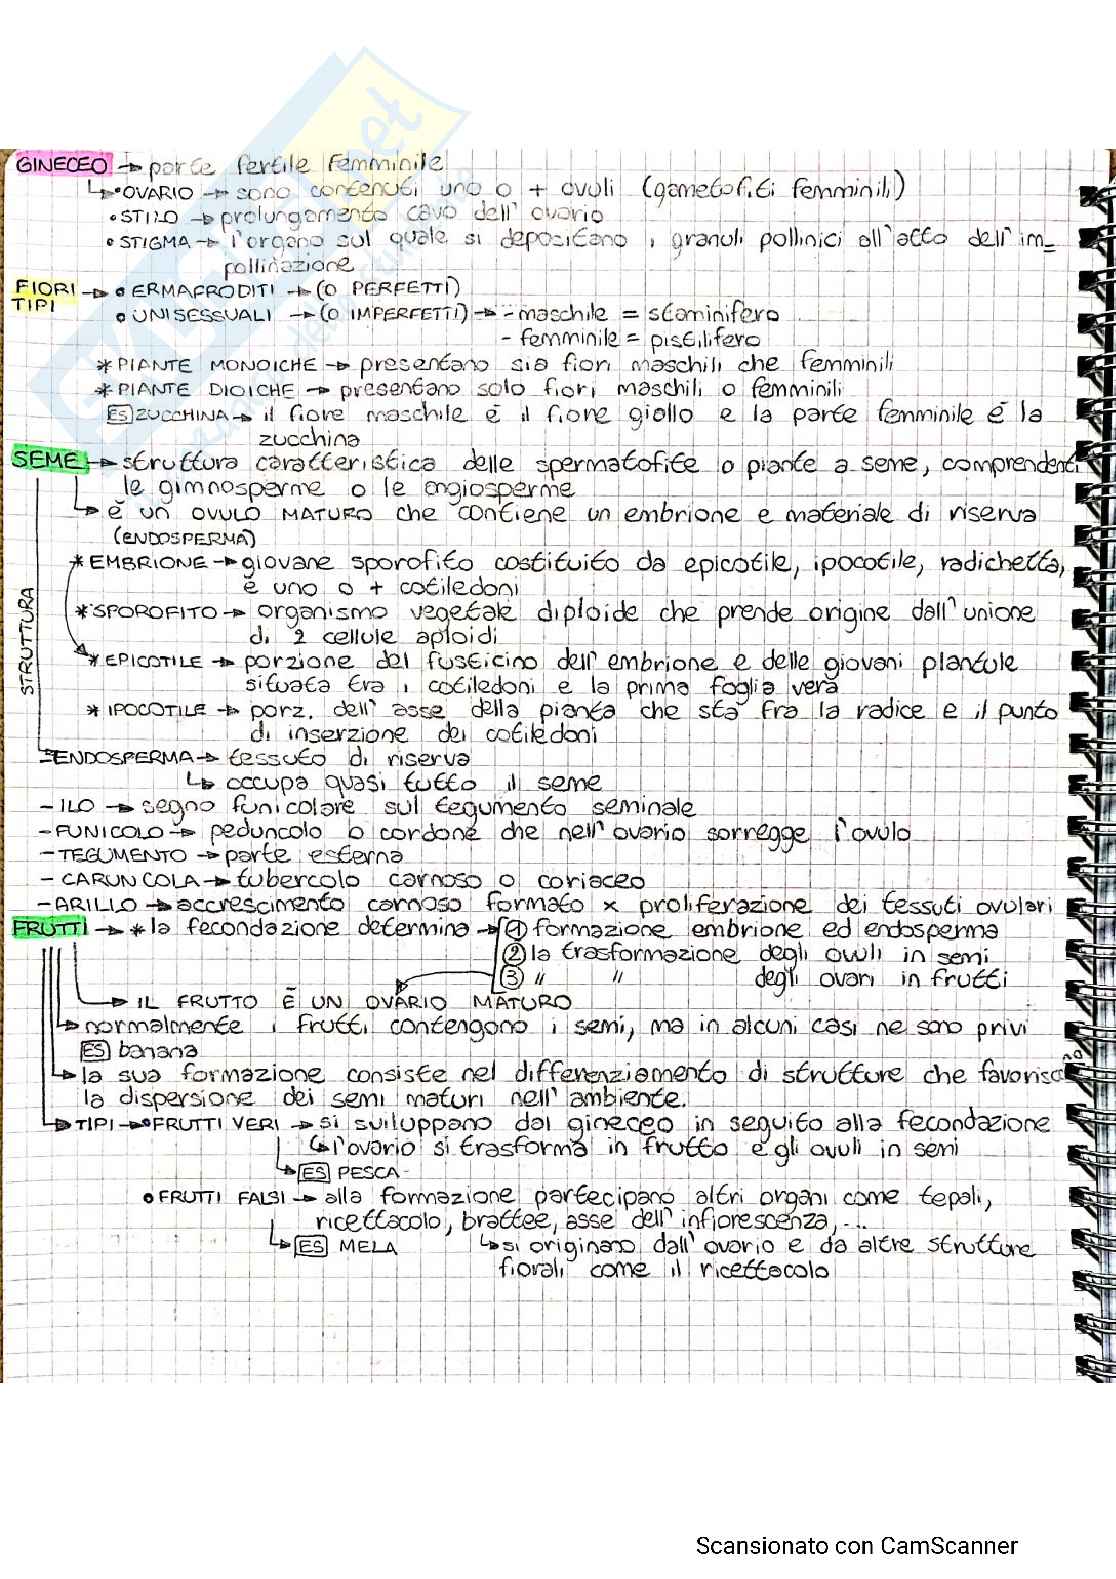 GINECEO → parte fertile femminile
↳ • OVARIO → sono contenuti uno o + ovuli (gametofiti femminili)
• STILO → prolungamento cavo dell'ovario
• STIGMA → l'organo sul quale si depositano i granuli pollinici all'atto dell'im_
pollinazione
FIORI TIPI → • ERMAFRODITI → (O PERFETTI)
• UNISESSUALI → (O IMPERFETTI) → - maschile = staminifero
- femminile = pistilifero
* PIANTE MONOICHE → presentano sia fiori maschili che femminili
* PIANTE DIOICHE → presentano solo fiori maschili o femminili
ES ZUCCHINA → il fiore maschile è il fiore giallo e la parte femminile è la
zucchina
SEME → struttura caratteristica delle spermatofite o piante a seme, comprendenti
le gimnosperme o le angiosperme
↳ è UN OVULO MATURO che contiene un embrione e materiale di riserva
(ENDOSPERMA)
STRUTTURA
* EMBRIONE → giovane sporofito costituito da epicotile, ipocotile, radichetta,
è uno o + cotiledoni
* SPOROFITO → organismo vegetale diploide che prende origine dall'unione
di 2 cellule aploidi
* EPICOTILE → porzione del fusticino dell'embrione e delle giovani plantule
situata tra i cotiledoni e la prima foglia vera
* IPOCOTILE → porz. dell'asse della pianta che sta fra la radice e il punto
di inserzione dei cotiledoni
- ENDOSPERMA → tessuto di riserva
↳ occupa quasi tutto il seme
- ILO → segno funicolare sul tegumento seminale
- FUNICOLO → peduncolo o cordone che nell'ovario sorregge l'ovulo
- TEGUMENTO → parte esterna
- CARUNCOLA → tubercolo carnoso o coriaceo
- ARILLO → accrescimento carnoso formato x proliferazione dei tessuti ovulari
FRUTTI → * la fecondazione determina → ① formazione embrione ed endosperma
② la trasformazione degli ovuli in semi
③ " " degli ovari in frutti
→ IL FRUTTO È UN OVARIO MATURO
→ normalmente i frutti contengono i semi, ma in alcuni casi ne sono privi
ES banana
→ la sua formazione consiste nel differenziamento di strutture che favorisco
no
la dispersione dei semi maturi nell'ambiente.
→ TIPI → • FRUTTI VERI → si sviluppano dal gineceo in seguito alla fecondazione
↳ l'ovario si trasforma in frutto e gli ovuli in semi
↳ ES PESCA
• FRUTTI FALSI → alla formazione partecipano altri organi come tepali,
ricettacolo, brattee, asse dell'infiorescenza, ...
↳ ES MELA ↳ si originano dall'ovario e da altre strutture
fiorali come il ricettacolo
Scansionato con CamScanner